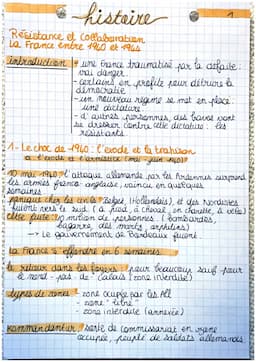 histoire
1
Résistance et Collaboration
La France entre 1940 et 1944
introduction
• une France traumatisé par la défaite :
vrai danger
- certains en profite pour détruire la
démocratie
- un nouveau régime se met en place :
une dictature
- d'autres personnes, des
se dresser contre cette dictature : les
résistants
1 - Le choc de 1940 : l'exode et la trahison
a. l'exode et l'armistice (mai - juin 1940)
10 mai 1940 l'attaque allemande par les Ardennes surprend
les armées franco-anglaise, vaincu en quelques
semaines
panique chez les civils (belges, Hollandais) et des Nordistes
fuient vers le sud (à pied, à cheval, en charette, à vélo)
cette fuite : 10 million de personnes (bombardés,
bagarre, des morts, orphelins)
→ Le gouvernement de Bordeaux fuient
La France s'effondre en 6 semaines
le retour dans les foyers pour beaucoup sauf pour
le nord - pas - de - Calais (zone interdite)
types de zones - zone occupée par les All
- zone "libre"
- zone interdite (annexée)
Kommandantur : sorte de commissariat en zone
occupée, peuplé de soldats allemands